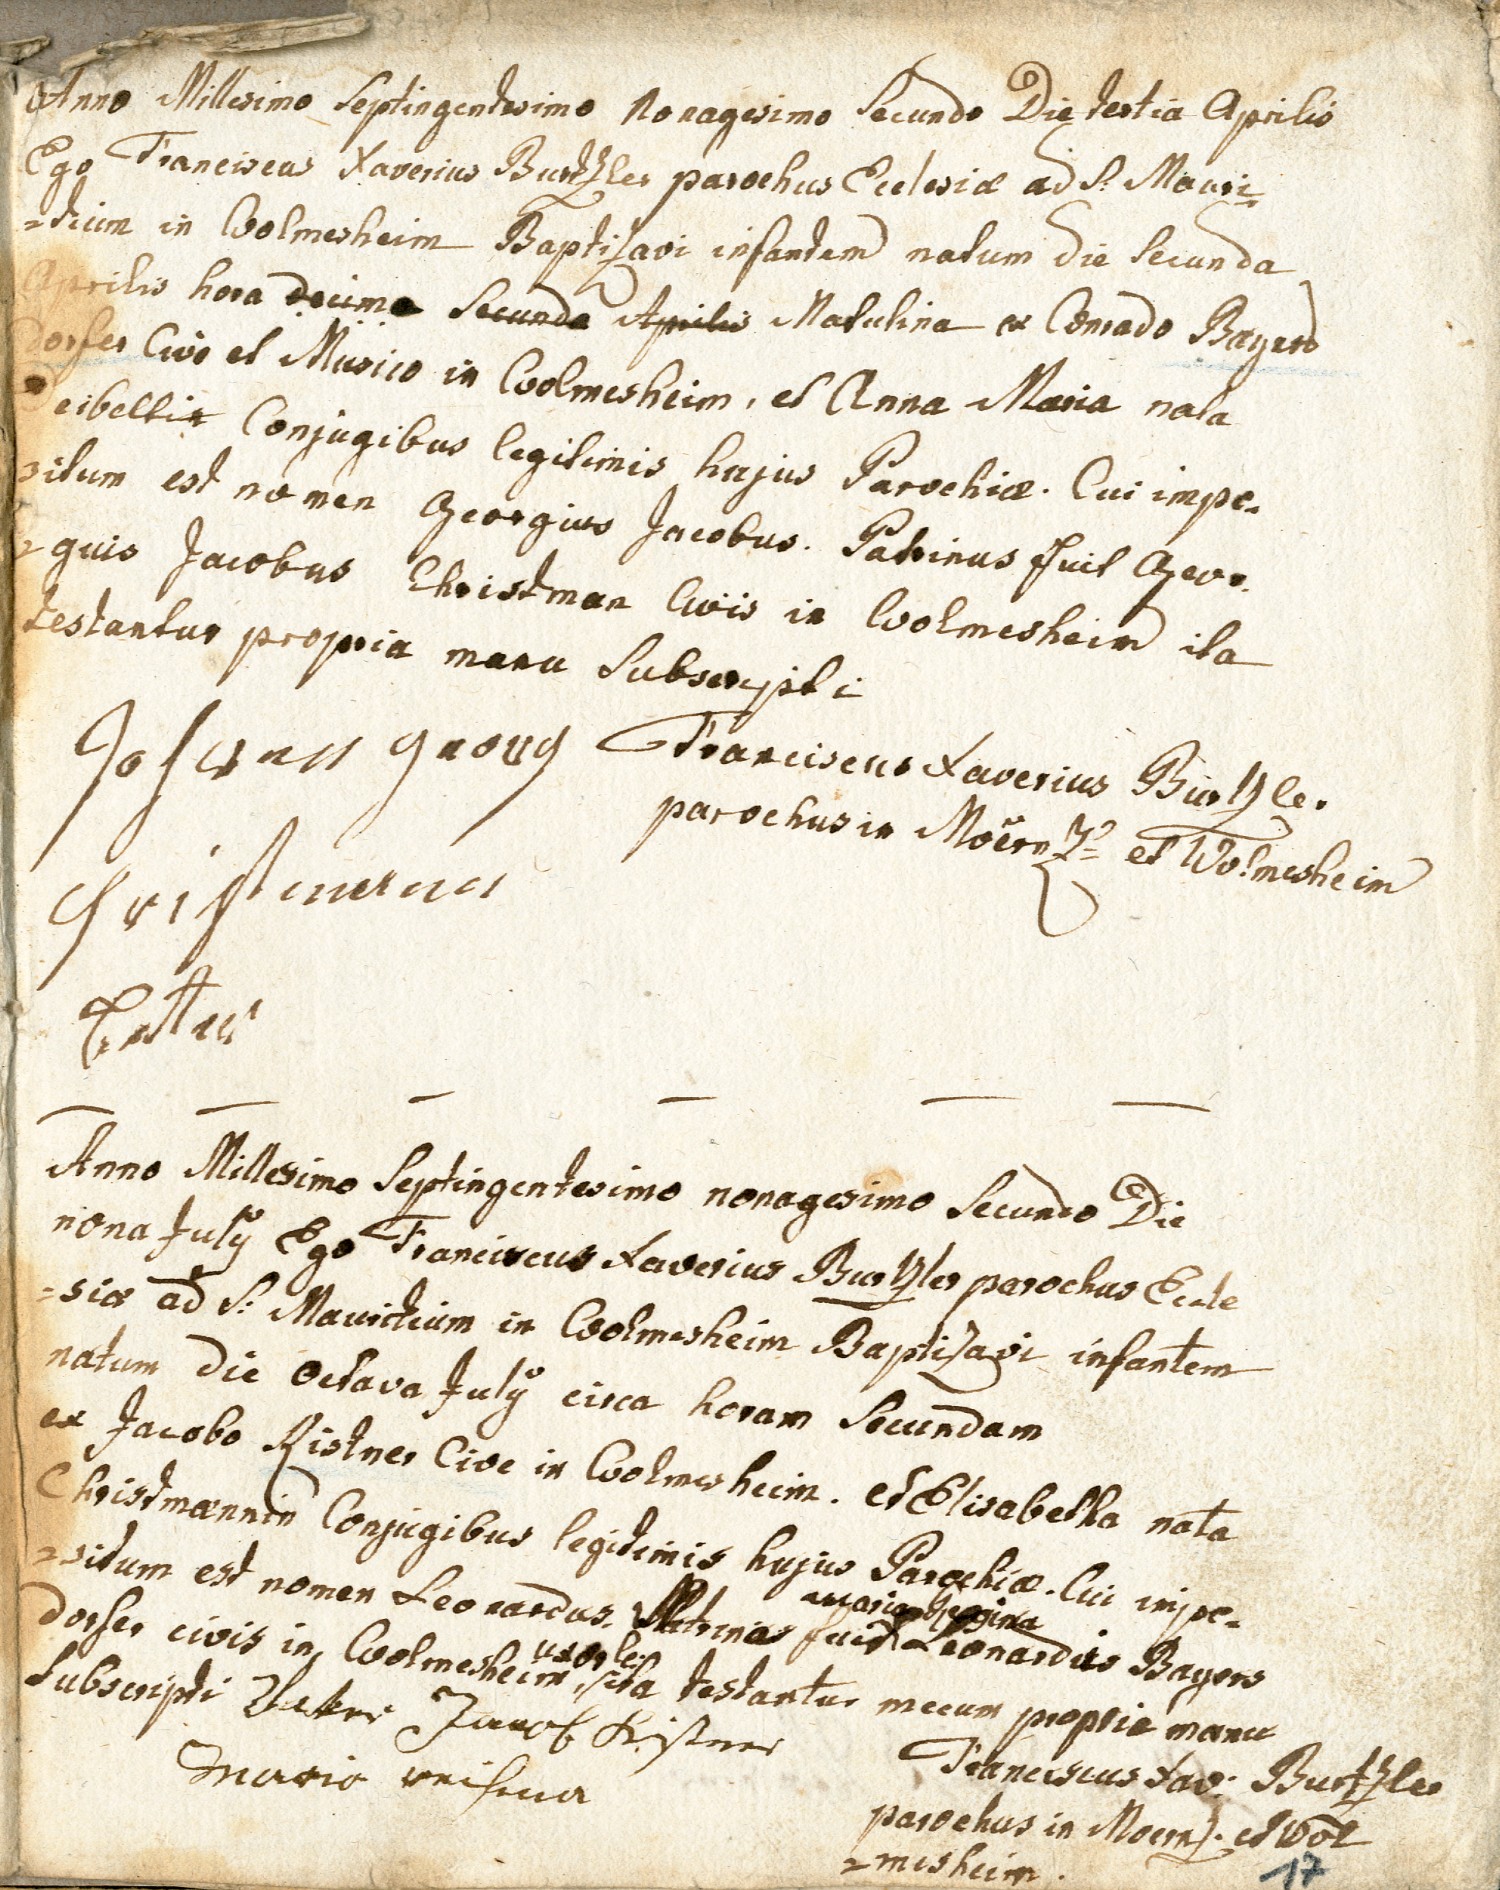 Anno Millesimo Septingentesimo Nonagesimo Secundo Die tertia Aprilis
Ego Franciscus Xaverius Burtzler parochus Ecclesiæ ad S: Mauri
=tium in Wolmesheim Baptizavi infantem natum die Secunda
Aprilis hora decima Secunda Aprilis Matutina ex Conrado Bayers
dorfer Cive et Musico in Wolmesheim, et Anna Maria nata
Deibellin Conjugibus legitimis hujus Parochiæ. Cui impo=
situm est nomen Georgius Jacobus. Patrinus fuit Geor=
=gius Jacobus Christman Civis in Wolmesheim ita
testantur propria manu Subscripti
Johannes Georg Franciscus Xaverius Burtzler
parochus in Moërnz: et Wolmesheim
Christmann

Anno Millesimo Septingentesimo nonagesimo Secundo Die
nona July Ego Franciscus Xaverius Burtzler parochus Eccle
=siæ ad S: Mauritium in Wolmesheim Baptizavi infantem
natum die octava July circa horam Secundam
ex Jacobo Kistner Cive in Wolmesheim. et Elisabetha nata
Christmannin Conjugibus legitimis hujus Parochiæ. Cui impo=
=situm est nomen Leonardus. Matrina fuit Maria Regina Leonardi Bayers
dorfer civis in Wolmesheim uxor ita testantur mecum propria manu
Subscripti Vater Jacob Kistner
Maria
Franciscus Xav: Burtzler
parochus in Moernz. et Wol
=mesheim.
17